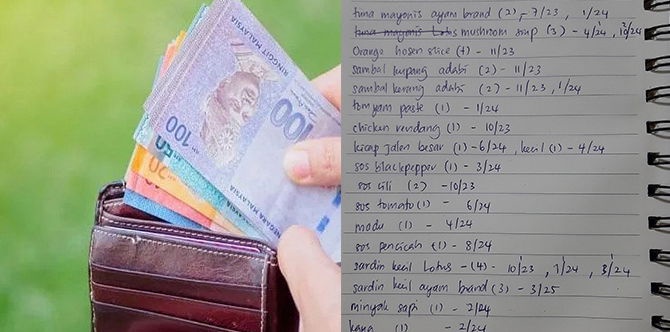 RINGGIT MALAYSIA
100
100
50
20
NEGARA MALAYSIA
tuna mayonis ayam brand (2) - 7/23, 1/24
tuna mayonis Lotus mushroom soup (3) - 4/24, 10/24
Orange hosen slice (1) - 11/23
sambal kupang adabi (2) - 11/23
sambal kerang adabi (2) - 11/23, 1/24
tomyam paste (1) - 1/24
chicken rendang (1) - 10/23
kicap jalen besar (1) - 6/24, kecil (1) - 4/24
sos blackpepper (1) - 3/24
sos cili (2) - 10/23
sos tomato (1) - 6/24
madu (1) - 4/24
sos pencicah (1) - 8/24
sardin kecil Lotus - (4) - 10/23, 1/24, 3/24
sardin kecil ayam brand (3) - 3/25
minyak sapi (1) - 2/24
kaya (1) - 2/24